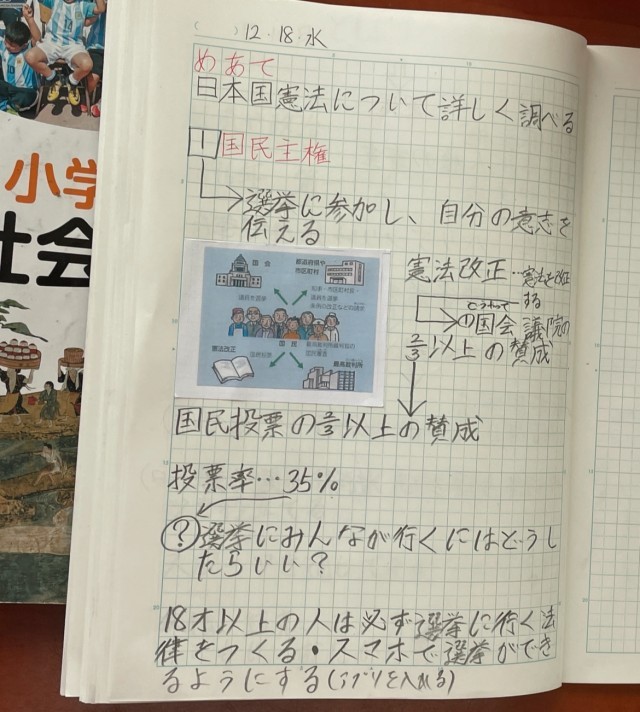 ( ) 12・18・水
めあて
日本国憲法について詳しく調べる
1 国民主権
選挙に参加し、自分の意志を
伝える
憲法改正…憲法を改正
する
の国会議院の
2/3以上の賛成
国会
都道府県や
市区町村
議員を選挙
知事・市区町村長・
議員を選挙
条例の改正などの請求
国民
最高裁判所裁判官の
国民審査
憲法改正
国民投票
最高裁判所
国民投票の2/3以上の賛成
投票率…35%
? 選挙にみんなが行くにはどうし
たらいい?
18才以上の人は必ず選挙に行く法
律をつくる・スマホで選挙ができ
るようにする(アプリを入れる)
小学
社会